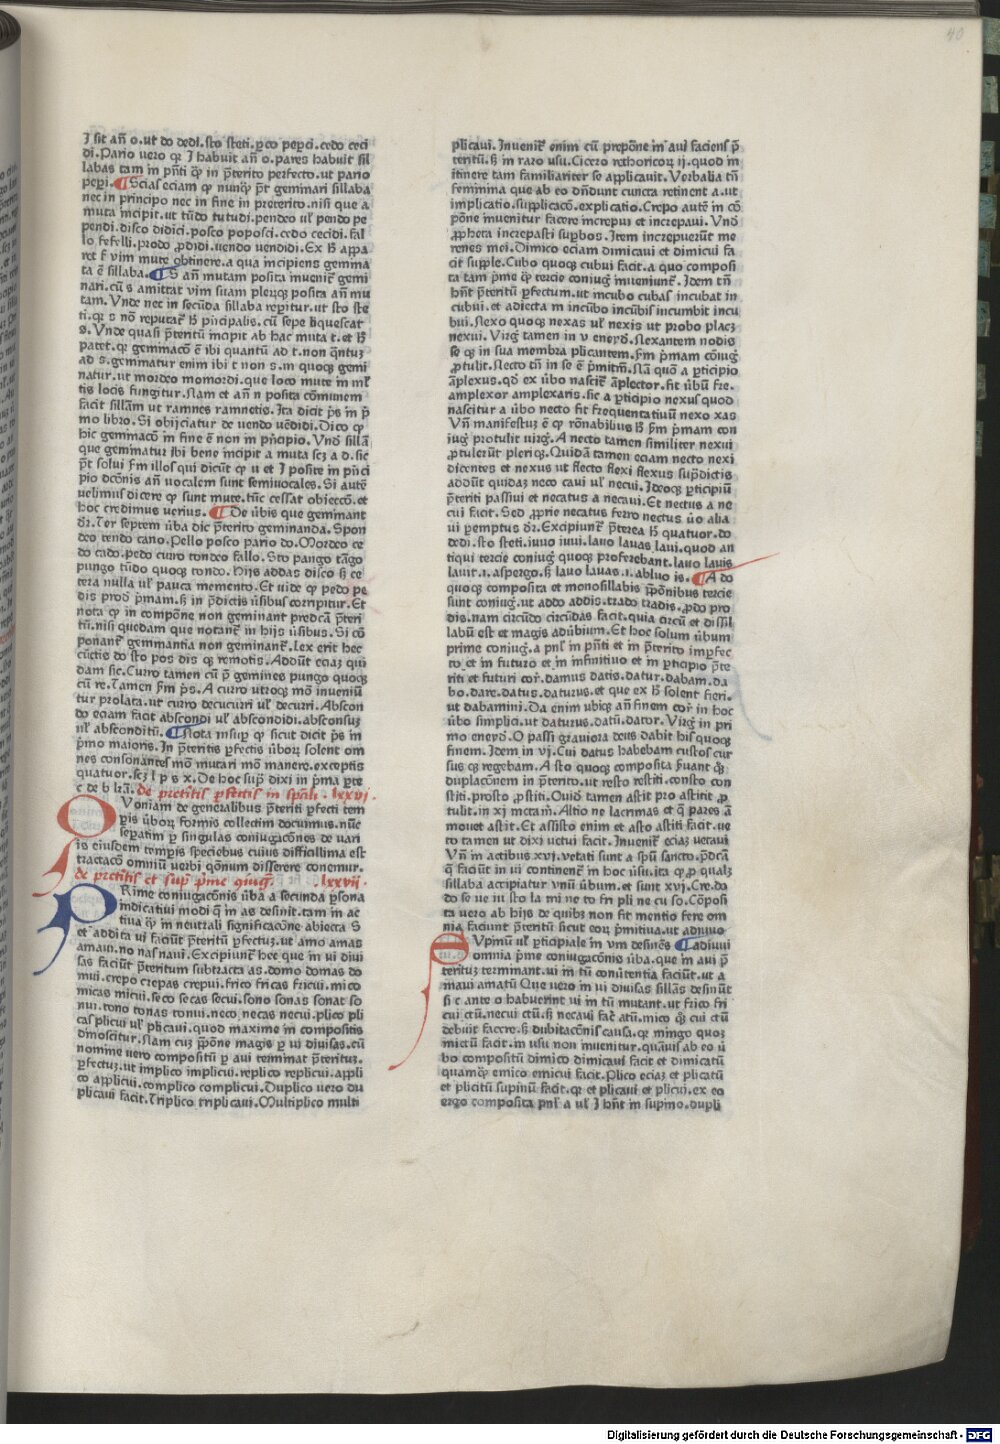 40
J sit añ o.ut do dedi.sto steti.ꝑco peꝑci.cedo ceci
di.Pario uero qꝛ J habuit añ o.pares habuit sil
labas tam in pñti ꝙ̃ in p̃terito perfecto.ut pario
peꝑi.¶Scias eciam ꝙ nunꝙ̃ p̃t geminari sillaba
nec in principo nec in fine in preterito.nisi que a
muta incipit.ut tũdo tutudi.pendeo ul̕ pendo pe
pendi.disco didici.posco poposci.cedo cecidi.fal
lo fefelli.prodo ꝓdidi.uendo uendidi.Ex ħ appa
ret ſ̕ vim mute obtinere.a qua incipiens gemma
ta ẽ sillaba.¶S añ mutam posita mueniẗ gemi
nari.cũ s amittat vim suam plerũqꝫ posita añ mu
tam.Vnde nec in secũda sillaba repitur.ut sto ste
ti.qꝛ s nõ reputaẗ ħ pͥncipalis.cũ sepe liquescat
s.Vnde quasi p̃teritũ incipit ab hac muta t.et ħ
patet.qꝛ gemmacõ ẽ ibi quantũ ad t.non q̃ntuꝫ
ad s.gemmatur enim ibi t non s.m quoqꝫ gemi
natur.ut mordeo momordi.que loco mute in ml̕
tis locis fungitur.Nam et añ n posita cõmunem
facit sillãm ut ramnes ramnetis.Ita dicit p̃s in p̃
mo libro.Si obijciatur de uendo uẽdidi.Dico ꝙ
hic gemmacõ in fine ẽ non in pͥncipio.Vnð sillã
que gemmatur ibi bene incipit a muta scꝫ a d.sic
p̃t solui ſm illos qui dicũt ꝙ u et J posite in pͥnci
pio dcõnis añ uocalem sunt semiuocales.Si autẽ
uelimus dicere ꝙ sunt mute.tũc cessat obieccõ.et
hoc credimus uerius.¶De ũbis que gemmant
dꝛ̃.Ter septem ũba dic p̃terito geminanda.Spon
deo tendo cano.Pello posco pario do.Mordeo ce
do cado.pedo curro tondeo fallo.Sto pango tãgo
pungo tũdo quoqꝫ tondo.Hijs addas disco ẜ ce
tera nulla ul̕ pauca memento.Et uide ꝙ pedo pe
dis prod̕ p̃mam.ẜ in p̃dictis ũsibus corripitur.Et
nota ꝙ in compõne non geminant predcã p̃teri
tũ.nisi quedam que notanẗ in hijs ũsibus.Si cõ
ponanẗ gemmantia non geminanẗ.lex erit hec
cũctis do sto pos dis qꝫ remotis.Addũt eciaꝫ qui
dam sic.Curro tamen cũ p̃ gemines pungo quoqꝫ
cũ re.Tamen ſm p̃s.A curro utroqꝫ mõ inueniũ
tur prolata.ut curro decucurri ul̕ decurri.Abscon
do eciam facit abscondi ul̕ abscondidi.absconsuꝫ
ul̕ absconditũ.¶Nota insuꝑ ꝙ sicut dicit p̃s in
p̃mo maioris.In p̃teritis ꝑfectis ũboꝝ solent om
nes consonantes mõ mutari mõ manere.exceptis
quatuor.scꝫ l p s x.De hoc suꝓ dixi in p̃ma ꝑte
c de b lr̃a.de pretitis pfectis in spãli. lxxvi.
QVoniam de generalibus p̃teriti ꝑfecti tem
ꝑis ũboꝝ formis collectim docuimus.nũc
seꝑatim ꝑ singulas coniugacõnes de vari
is eiusdem temꝑis speciebus cuius difficillima est
tractacõ omniũ uerbi q̃onum disserere conemur.
de pretitis et sup p̃me ꝯiug̃. .lxxvii.
PRime coniugacõnis ũba a secunda ꝑsona
indicatiui modi q̃ in as desinit.tam in ac
tiua ꝙ̃ in neutrali significacõne abiecta S
et addita ui faciũt p̃teritũ ꝑfectuꝫ.ut amo amas
amaui.no nas naui.Excipiunẗ hec que in ui diui
sas faciũt p̃teritum subtracta as.domo domas do
mui.crepo crepas crepui.frico fricas fricui.mico
micas micui.seco secas secui.sono sonas sonat so
nui.tono tonas tonui.neco necas necui.plico pli
cas plicui ul̕ plicaui.quod maxime in compositis
dinoscitur.Nam cuꝫ p̃põne magis ꝑ ui diuisas.cũ
nomine uero compositũ ꝑ aui terminat p̃teritiuꝫ
ꝑfectuꝫ.ut implico implicui.replico replicui.appli
co applicui.complico complicui.Duplico uero du
plicaui facit.Triplico triplicaui.Multiplico multi
plicaui.Inueniẗ enim cũ prepõne in aui faciens p̃
teritũ.ẜ in raro usu.Cicero rethoricoꝝ ij.quod in
itinere tam familiariter se applicauit.Verbalia tñ
feminina que ab eo dñdunt cuncta retinent a.ut
implicatio.supplicacõ.explicatio.Crepo autẽ in cõ
põne inuenitur facere increpui et increpaui.Vnð
ꝓpheta increpasti suꝑbos.Item increpuerũt me
renes mei.Dimico eciam dimicaui et dimicui fa
cit supple.Cubo quoqꝫ cubui facit.a quo composi
ta tam p̃me ꝙ̃ tercie coniug̕ inueniunẗ.Idem tñ
hñt p̃teritũ ꝑfectum.ut incubo cubas incubat in
cubui.et adiecta m incũbo incũbis incumbit incu
bui.Nexo quoqꝫ nexas ul̕ nexis ut probo placꝫ
nexui.Virg̕ tamen in v eneyd.Nexantem nodis
se qꝫ in sua membra plicantem.ſm p̃mam cõiug̕
ꝓtulit.Necto tñ in se ẽ p̃mitiñ.Nã quõ a ꝑticipio
ãplexus.qð ex ũbo nasciẗ ãplector.fit ũbũ fre.
amplexor amplexaris.sic a ꝑticipio nexus quod
nascitur a ũbo necto fit frequentatiuũ nexo xas
Vñ manifestuꝫ ẽ ꝙ rõnabilius ħ ſm p̃mam con
iug̕ protulit uirg̕.A necto tamen similiter nexui
ꝓtulerũt pleriqꝫ.Quidã tamen eciam necto nexi
dicentes et nexus ut flecto flexi flexus sup̃dictis
addũt quidaꝫ neco caui ul̕ necui.Ideoqꝫ ꝑticipiũ
p̃teriti passiui et necatus a necaui.Et nectus a ne
cui facit.Sed ꝓprie necatus ferro nectus ũo alia
ui ꝑemptus dꝛ̃.Excipiunẗ p̃terea ħ quatuor.do
dedi.sto steti.iuuo iuui.lauo lauas laui.quod an
tiqui tercie coniug̕ quoqꝫ proferebant.lauo lauis
lauit.ı.aspergo.ẜ lauo lauas.ı.abluo is.¶A do
quoqꝫ composita et monosillabis p̃põnibus tercie
sunt coniug̕.ut addo addis.trado tradis.ꝓdo pro
dis.nam circũdo circũdas facit.quia circũ et dissil
labũ est et magis aduerbium.Et hoc solum ũbum
prime coniug̕.a pñl in pñti et in p̃terito imꝑfec
to et in futuro et in infinitiuo et in ꝑticipio p̃te
riti et futuri coꝛ̃.damus datis.datur.dabam.da
bo.dare.datus.daturus.et que ex ħ solent fieri.
ut dabamini.Da enim ubiqꝫ añ finem coꝛ̃ in hoc
ũbo simplici.ut daturus.datũ.dator.Virg̕ in pri
mo eneyd.O passi grauiora deus dabit his quoqꝫ
finem.Idem in vj.Cui datus habebam custos cur
sus qꝫ regebam.A sto quoqꝫ composita ſuant q̃ꝫ
duplacõnem in p̃terito.ut resto restiti.consto con
stiti.prosto ꝓstiti.Ouid̕ tamen astit pro astitit ꝓ
tulit.in xj metam̃.Altio ne lacrimas et q̃ pares a
mouet astit.Et assisto enim et asto astiti facit.ue
to tamen ut dixi uetui facit.Inueniẗ eciaꝫ uetaui
Vñ in actibus xvj.vetati sunt a spũ sancto.p̃dcã
q̃ faciũt in ui continenẗ in hoc ũsu.ita ꝙ ꝓ qualꝫ
sillaba accipiatur vnũ ũbum.et sunt xvj.Cre.da
do se ue iu sto la mi ne to fri pli ne cu so.Cõposi
ta uero ab hijs de quibꝫ non fit mentio fere om
nia faciunt p̃teritũ sicut eoꝝ p̃mitiua.ut adiuuo
SVpinũ ul̕ ꝑticipiale in vm desinẽs ¶adiuui
omnia p̃me coniugacõnis ũba.que in aui p̃
teritũ terminant.ui in tũ conũtentia faciũt.ut a
maui amatũ Que uero in ui diuisas sillãs desinũt
si c ante o habuerint ui in tũ mutant.ut frico fri
cui ctũ.necui ctũ.ẜ necaui fac̃ atũ.mico q̃ꝫ cui ctũ
debuit facere.ẜ dubitacõnis causa.qꝛ mingo quoꝫ
mictũ facit.in usu non inuenitur.quãuis ab eo ũ
bo compositũ dimico dimicaui facit et dimicatũ
quamꝙ̃ emico emicui facit.Plico eciaꝫ et plicatũ
et plicitũ supinũ facit.qꝛ et plicaui et plicui.ex eo
ergo composita pñl̕ a ul̕ J hñt in supino.dupli
Digitalisierung gefördert durch die Deutsche Forschungsgemeinschaft - DFG